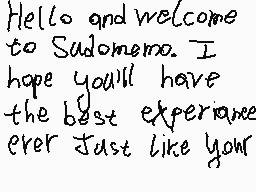 Hello and welcome
to Sudomemo. I
hope you'll have
the best experiance
ever Just like your